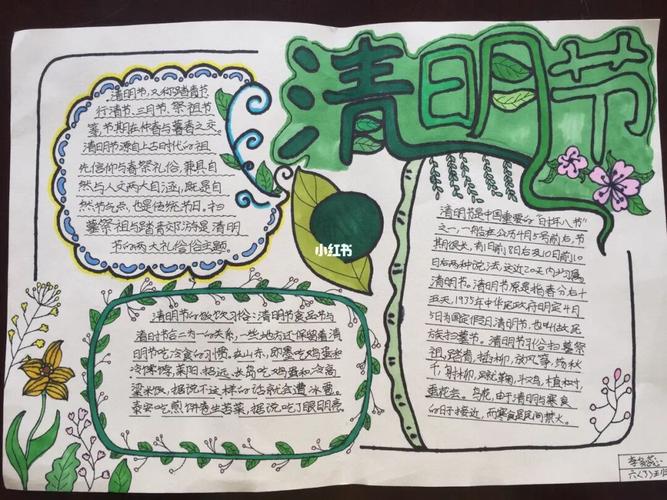 清明节
清明节,又称踏青节
行清节、三月节、祭祖节
等,节期在仲春与暮春之交。
清明节源自上古时代的祖
先信仰与春祭礼俗,兼具自
然与人文两大内涵,既是自
然节气点,也是传统节日。扫
墓祭祖与踏青郊游是清明
节的两大礼俗主题。
小红书
清明节是中国重要的"时年八节"
之一,一般是在公历4月5号前后,节
期很长,有10日前8日后及10日前10
日后两种说法,这近20天内均属
清明节。清明节原是指春分后十
五天,1935年中华民政府明定4月
5日为国定假日清明节,也叫做民
族扫墓节。清明节习俗扫墓祭
祖,踏青,插柳,放风筝,荡秋
千,射柳,蹴鞠,斗鸡,植树,
蚕花会。
由于清明与寒食
的日子接近,而寒食是民间禁火。
清明节的饮食习俗:清明节食品节与
清明
合二为一的关系,一些地方还保留着清
明节吃冷食的习惯。在山东,即墨吃鸡蛋和
冷饽饽,莱阳、招远、长岛吃鸡蛋和冷高
梁米饭,据说不这样的话就会遭冰雹。
泰安吃煎饼卷生苦菜,据说吃了眼明亮
六(3)班